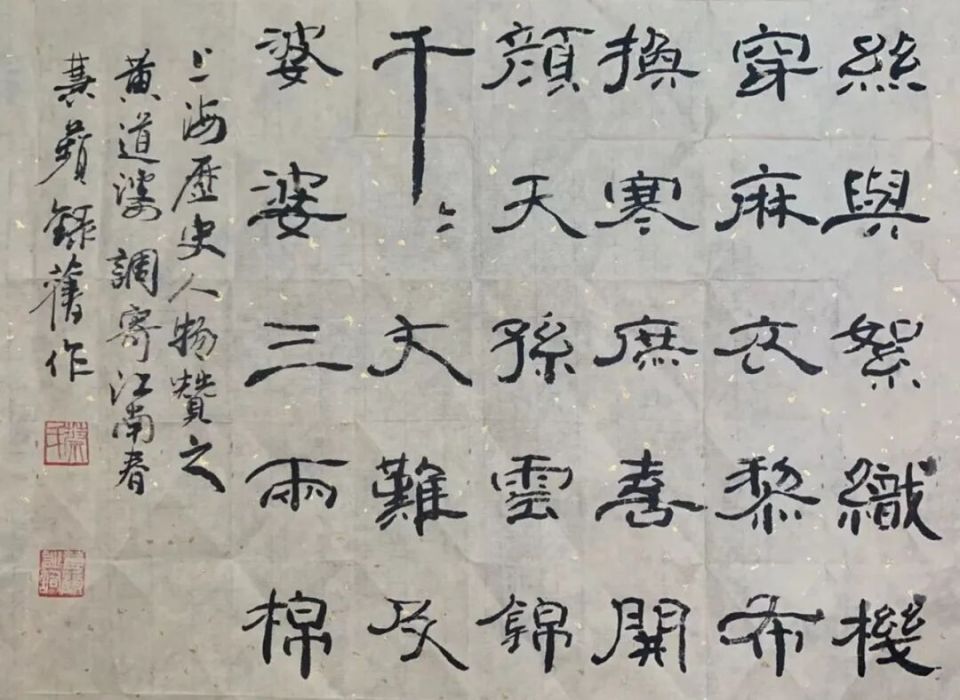 絲與絮織機
穿麻衣黎布
換寒庶喜開
顏天孫雲錦
千〻丈難及
婆婆三兩棉
上海歷史人物贊之
黄道婆 調寄江南春
蘋錄舊作